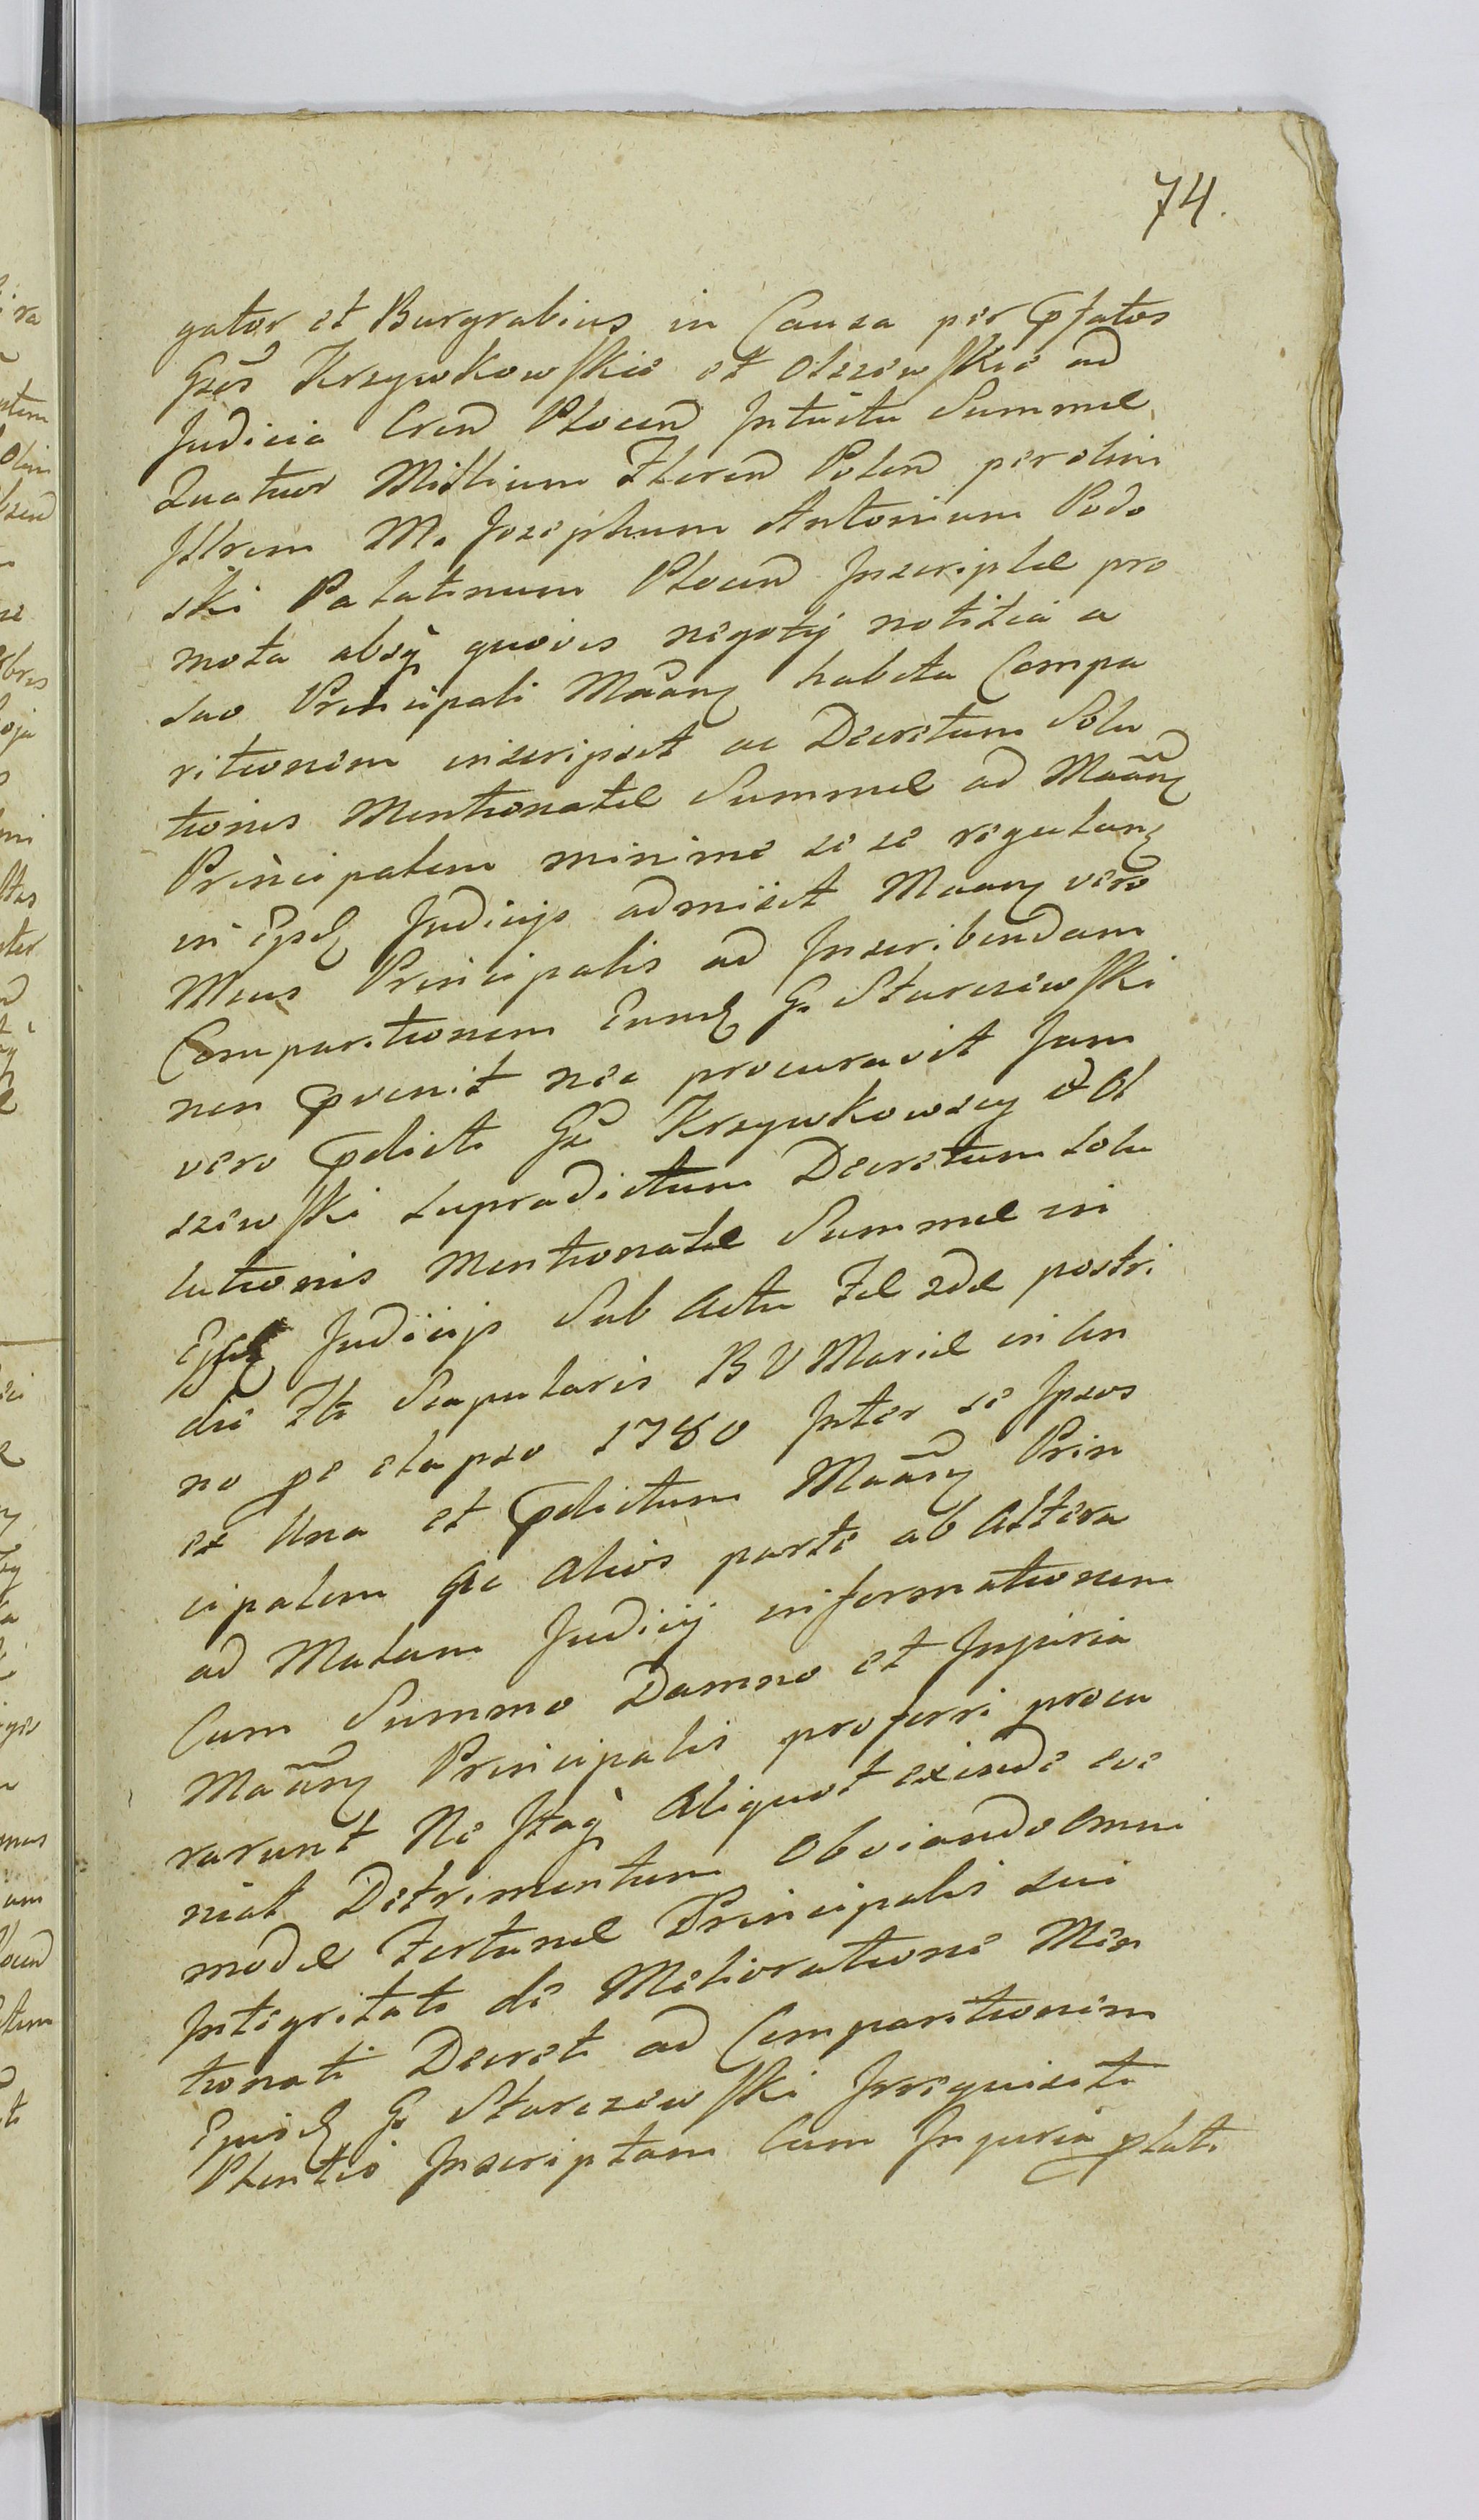 74.
gator et Burgrabius in Causa per Pfatos
Gsos Krzywkowskie et Olszewskie ad
Judicia Cren Plocen Intuitu Summae
Quatuor Millium Floren Polon per olim
Illrem M. Josephum Antonium Podo
ski Palatinum Plocen Inscriptae pro
mota absq quovis negotij notitia a
suo Principali habita Compa
ritionem inscripsit ac Decretum Solu
tionis Mentionatae Summae ad
Principalem minime se se regulan
in Judicijs admisit vero
Meus Principalis ad Inscribendam
Comparitionem G. Starczewski
non Pvenit nec procuravit Jam
vero Pdicti Gsi Krzywkowscy et Ol
szewski supradictum Decretum solu
lutionis Mentionatae Summae in
Judicijs Sub Actu Fel 2dae postri
die Fti Scapularis B V Mariae in An
no pe elapso 1780 Inter se Ipsos
ex Una et Pdictum Prin
cipalem Ac Alios parte ab Altera
ad Malam Judicij informationem
Cum Summo Damno et Injuria
Principalis proferri procu
rarunt Ne Itaq Aliquot exinde eve
niat Detrimentum Obviando omni
modae Fortunae Principalis sui
Integritati de Melioratione Men
tionati Decreti ad Comparitionem
G. Starczewski Irrequisiti
Plentis Inscriptam Cum Injuria plati